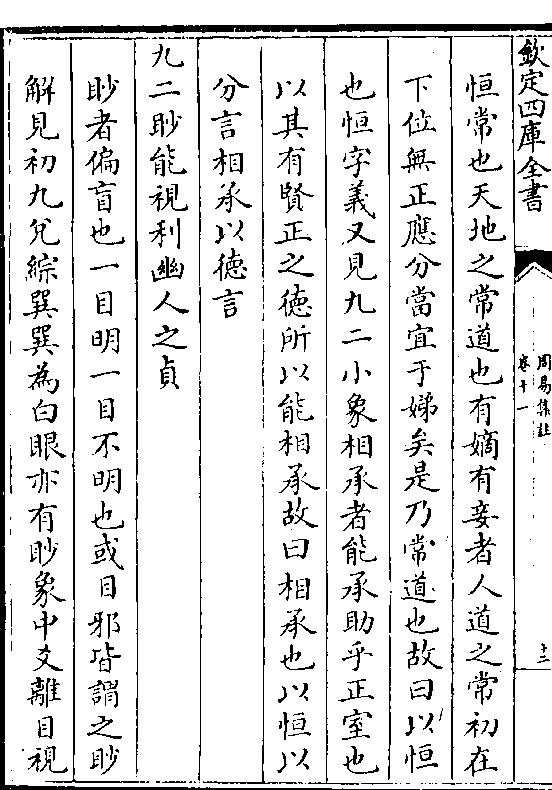 欽定四庫全書
周易集註
卷十一
十二
恒常也天地之常道也有嫡有妾者人道之常初在
下位無正應分當宜于娣矣是乃常道也故曰以恒
也恒字義又見九二小象相承者能承助乎正室也
以其有賢正之德所以能相承故曰相承也以恒以
分言相承以德言
九二眇能視利幽人之貞
眇者偏盲也一目明一目不明也或目邪皆謂之眇
解見初九兌綜巽巽為白眼亦有眇象中爻離目視